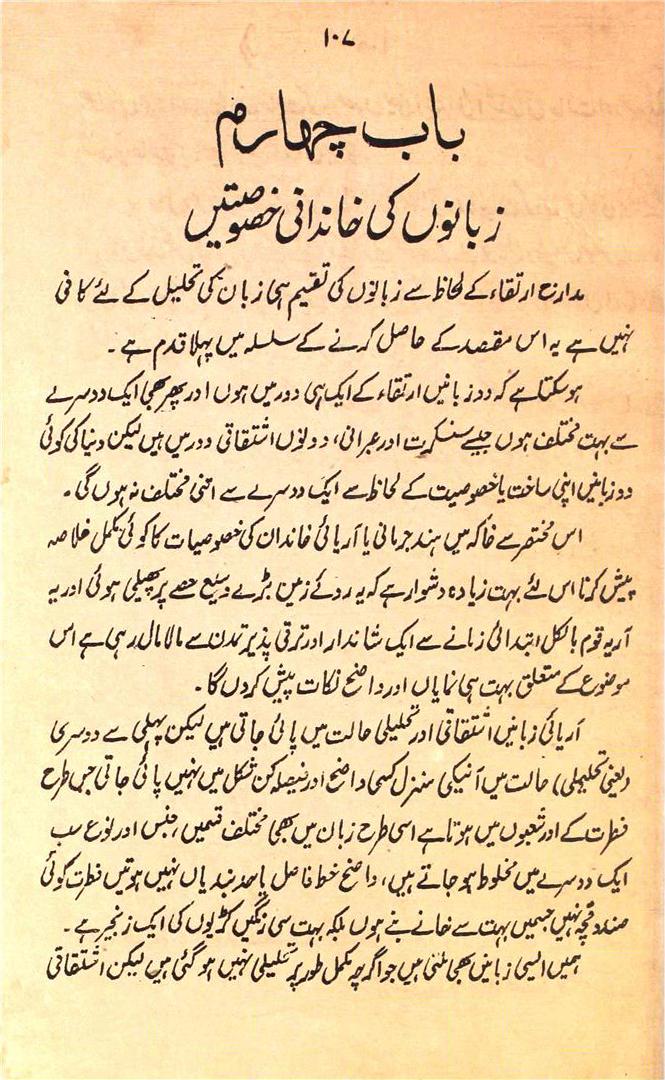 ۱۰۷
باب چہارم
زبانوں کی خاندانی خصوصیتیں
مدارج ارتقاء کے لحاظ سے زبانوں کی تقسیم ہی زبان کی تحلیل کے لئے کافی
نہیں ہے یہ اس مقصد کے حاصل کرنے کے سلسلہ میں پہلا قدم ہے۔
ہوسکتا ہے کہ دو زبانیں ارتقاء کے ایک ہی دور میں ہوں اور پھر بھی ایک دوسرے
سے بہت مختلف ہوں جیسے سنسکرت اور عبرانی، دونوں اشتقاقی دور میں ہیں لیکن دنیا کی کوئی
دو زبانیں اپنی ساخت یا خصوصیت کے لحاظ سے ایک دوسرے سے اتنی مختلف نہ ہوں گی۔
اس مختصر سے خاکہ میں ہند جرمانی یا آریائی خاندان کی خصوصیات کا کوئی مکمل خلاصہ
پیش کرنا اس لئے بہت زیادہ دشوار ہے کہ یہ روئے زمین بڑے وسیع حصے پر پھیلی ہوئی اور یہ
آریہ قوم بالکل ابتدائی زمانے سے ایک شاندار اور ترقی پذیر تمدن سے مالا مال رہی ہے اس
موضوع کے متعلق بہت ہی نمایاں اور واضح نکات پیش کروں گا۔
آریائی زبانیں اشتقاقی اور تحلیلی حالت میں پائی جاتی ہیں لیکن پہلی سے دوسری
(یعنی تحلیلی) حالت میں آنیکی منزل کسی واضح اور فیصلہ کن شکل میں نہیں پائی جاتی جس طرح
فطرت کے اور شعبوں میں ہوتا ہے اسی طرح زبان میں بھی مختلف قسمیں، جنس اور نوع سب
ایک دوسرے میں مخلوط ہو جاتے ہیں، واضح خط فاصل یا حد بندیاں نہیں ہوتیں فطرت کوئی
صندوقچہ نہیں جسمیں بہت سے خانے بنے ہوں بلکہ بہت سی رنگیں کڑیوں کی ایک زنجیر ہے۔
ہمیں ایسی زبانیں بھی ملتی ہیں جو اگرچہ مکمل طور پر تحلیلی نہیں ہو گئی ہیں لیکن اشتقاقی